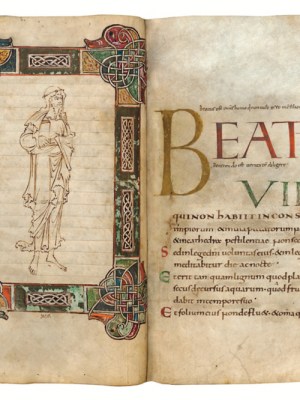 BEAT
VI
QUI NON HABIIT IN CONS
impiorum & in uia peccatorum
& in cathedra pestilentiae non sed
Sed in lege dni uoluntas eius & in lege
meditabitur die ac nocte
Et erit tamquam lignum quod pla
secus decursus aquarum quod fru
dabit in tempore suo
Et folium eius non defluet & omnia q